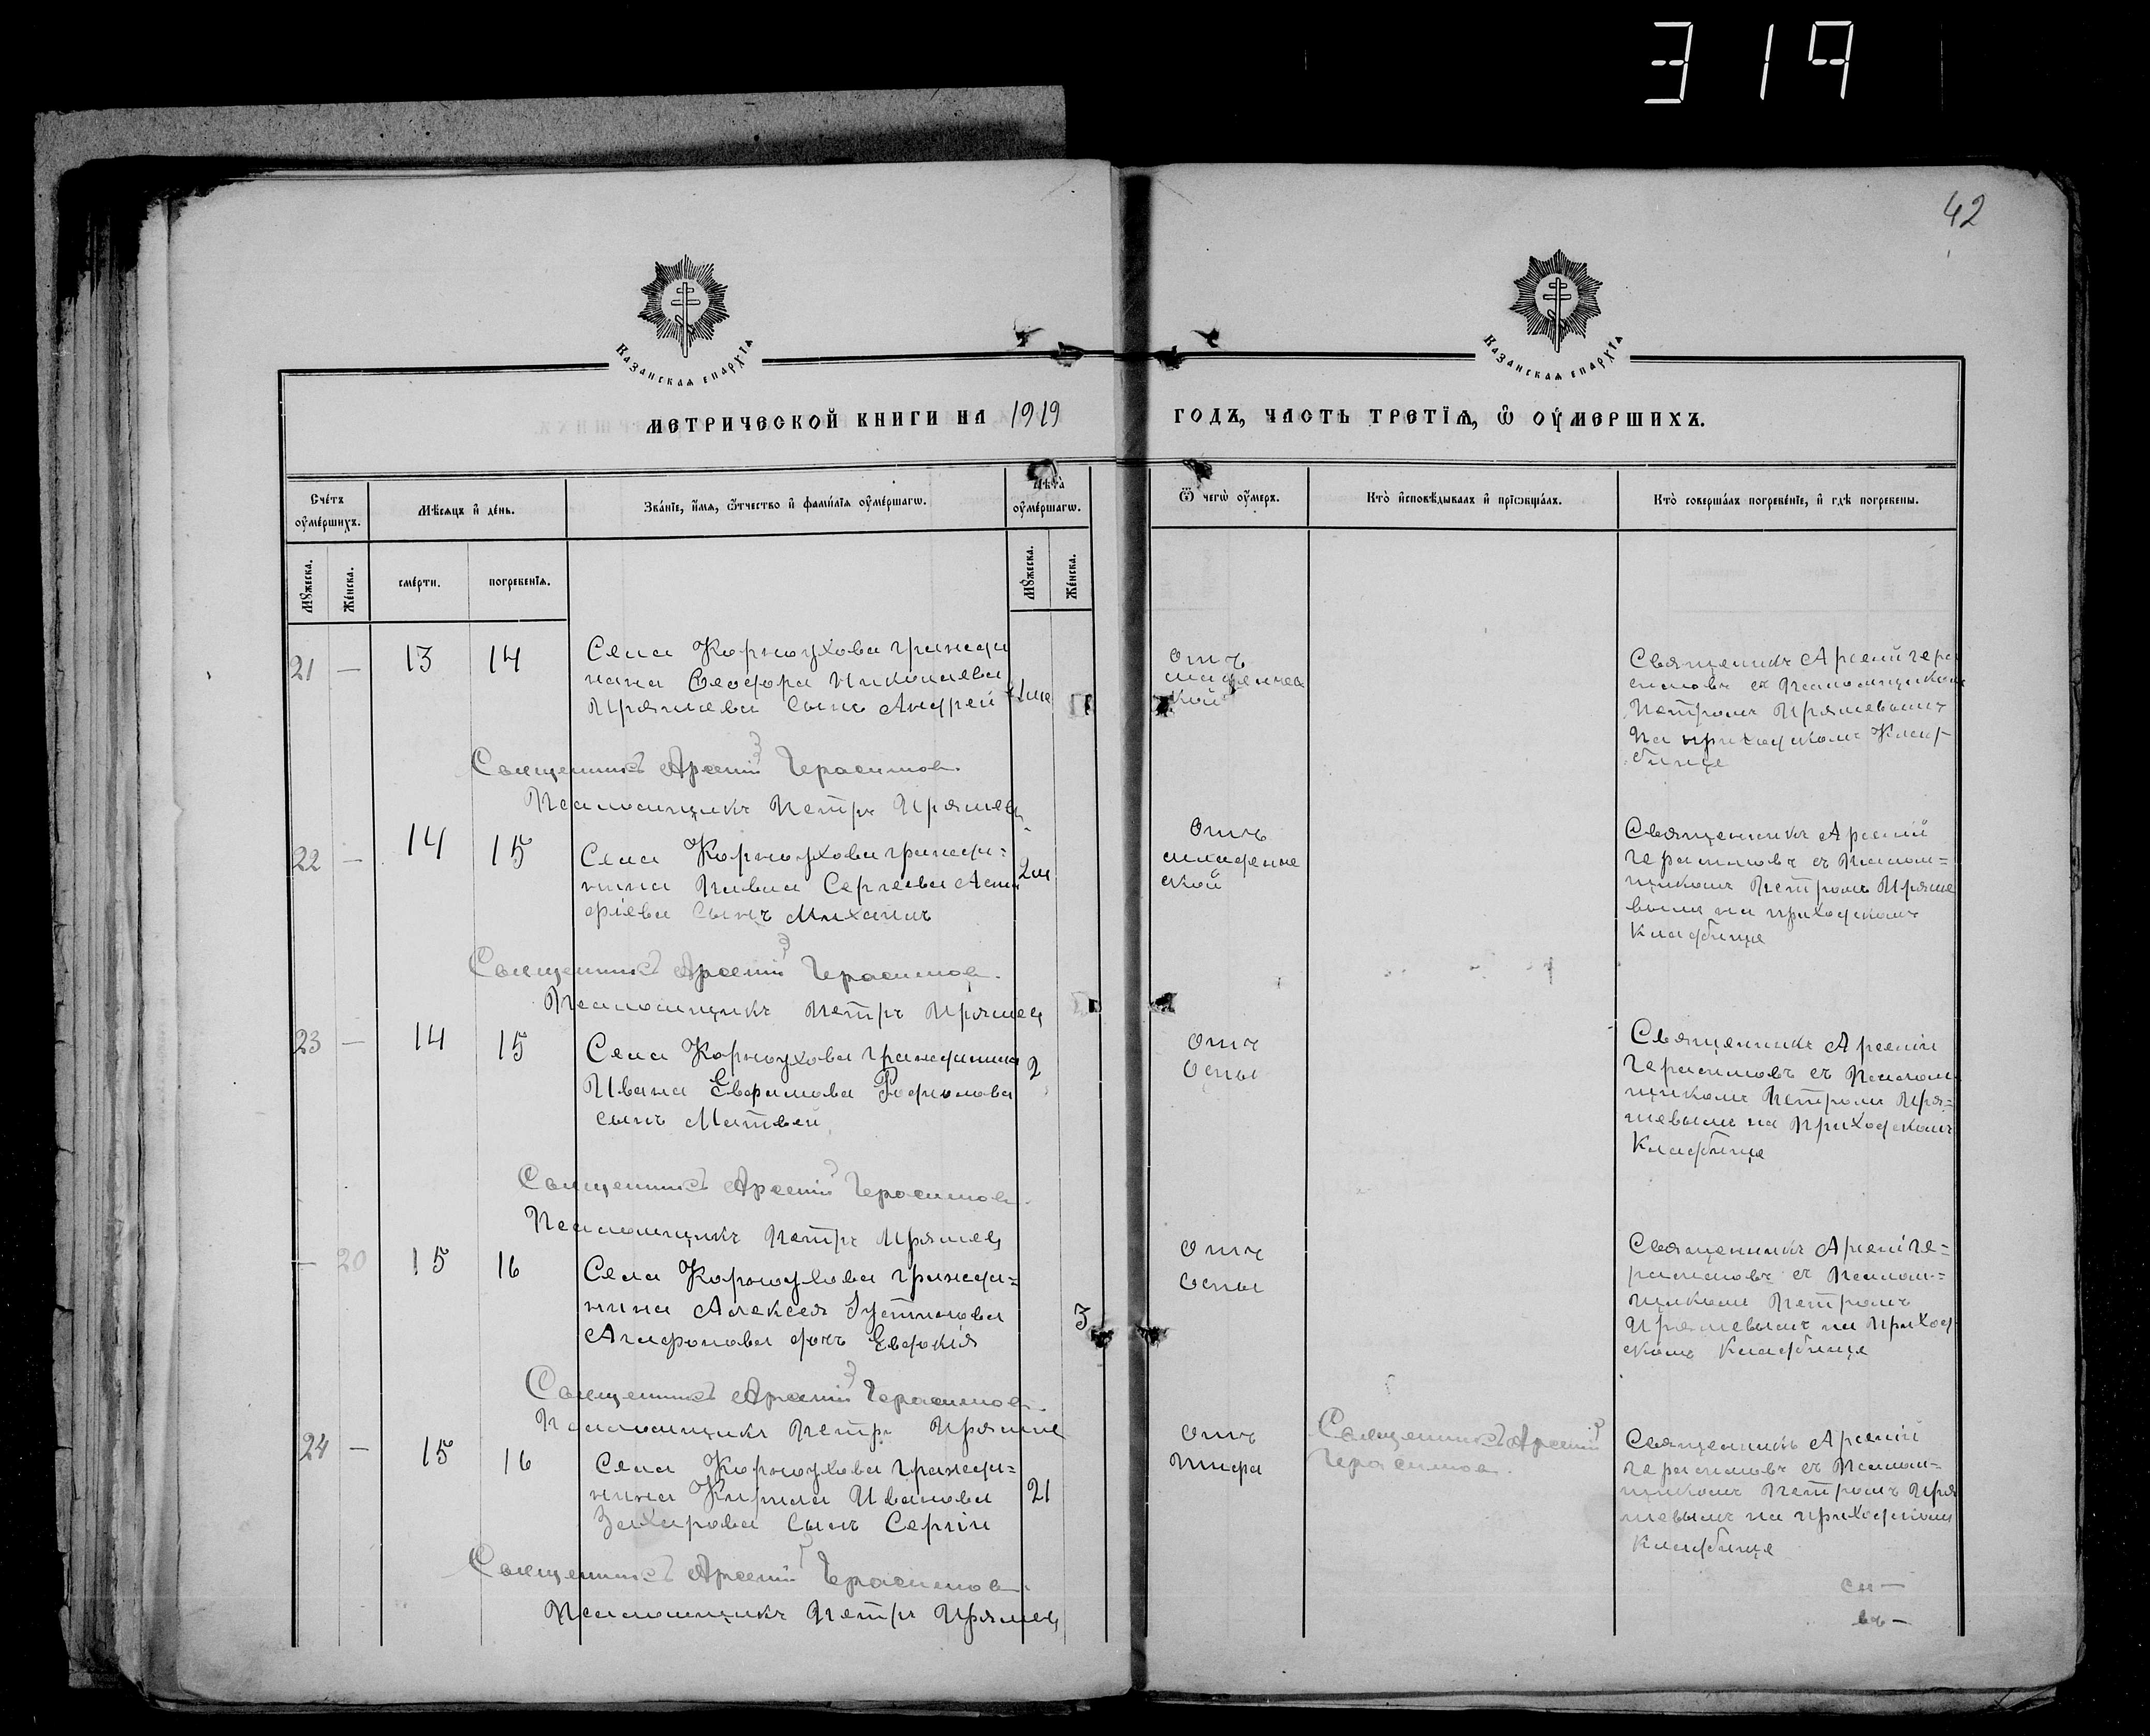 319
42
Казанская епархїѧ
Казанская епархїѧ
МЕТРИЧЕСКОЙ КНИГИ НА 1919
ГОДЪ, ЧАСТЬ ТРЕТЇѦ, Ѡ ОУМЕРШИХЪ.
Счетъ оумершихъ.
Мѣсяцъ и день.
Званїе, имя, отчество и фамилїя оумершагѡ.
Лѣта оумершагѡ.
Ѿ чегѡ оумеръ.
Кто исповѣдывалъ и прїобщалъ.
Кто совершалъ погребенїе, и гдѣ погребены.
Мꙋжеска.
Женска.
смерти.
погребенїѧ.
Мꙋжеска.
Женска.
21 — 13 14
Села Корноухова гражда
нина Ѳеодора Николаева
Пряшева сынъ Андрей
Отъ
младенчес
кой
Священникъ Арсеній Гера
симовъ съ Псаломщикомъ
Петромъ Пряшевымъ
На приходскомъ Клад-
бище
Священникъ Арсеній Герасимов.
Псаломщикъ Петръ Пряшев
22 — 14 15
Села Корноухова гражда=
нина Павла Сергеева Аста
фіева сынъ Михаилъ
2м
Отъ
младенче
ской
Священникъ Арсеній
Герасимовъ съ Псалом=
щикомъ Петромъ Пряше
вымъ на приходскомъ
Кладбище
Священникъ Арсеній Герасимов.
Псаломщикъ Петръ Пряшев
23 — 14 15
Села Корноухова гражданина
Ивана Евфимова Родионова
сынъ Матвей
2
Отъ
Оспы
Священникъ Арсеній
Герасимовъ съ Псалом
щикомъ Петромъ Пря=
шевымъ на Приходскомъ
Кладбище
Священникъ Арсеній Герасимов.
Псаломщикъ Петръ Пряшев
— 20 15 16
Села Корноухова гражда=
нина Алексея Іустинова
Агафонова дочь Евдокія
3
Отъ
Оспы
Священникъ Арсеній Ге=
расимовъ съ Псалом=
щикомъ Петромъ
Пряшевымъ на Приход-
скомъ Кладбище
Священникъ Арсеній Герасимов.
Псаломщикъ Петръ Пряше
24 — 15 16
Села Корноухова гражда=
нина Кирила Иванова
Захарова сынъ Сергій
21
Отъ
Тифа
Священникъ Арсеній
Герасимов.
Священникъ Арсеній
Герасимовъ съ Псалом=
щикомъ Петромъ Пря
шевымъ на приходскомъ
Кладбище
Священникъ Арсеній Герасимов.
Псаломщикъ Петръ Пряшев